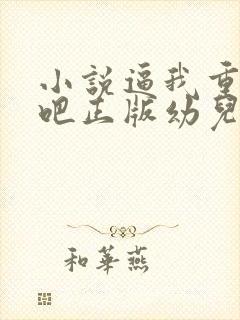 小說逼我重
吧正版幼兒
和華燕